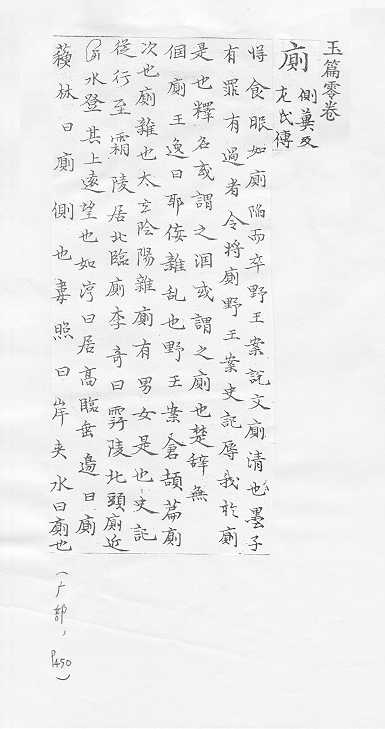 玉篇零卷
廁
側冀反
左氏傳
将食眠如廁陷而卒野王案説文廁清也墨子
有罪有過者令将廁野王案史記辱我於廁
是也釋名或謂之溷或謂之廁也楚辞無
個廁王逸曰耶佞雜乱也野王案倉頡篇廁
次也廁雜也太玄陰陽雜廁有男女是也史記
從行至霸陵居北臨廁李奇曰霸陵北頭廁近
水登其上遠望也如淳曰居髙臨垂邊曰廁
蘓林曰廁側也韋照曰岸夹水曰廁也
(广部,
P450)